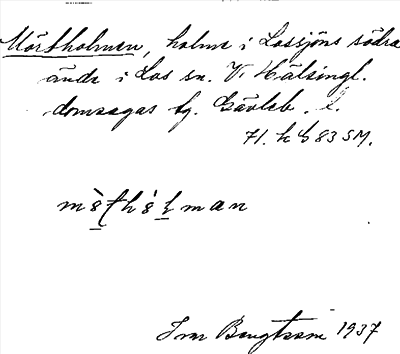 Mörtholmen, holme i Lossjöns södra
ände i Los sn. V. Hälsingl.
domsagas tg. Gävleb. l.
71. h 6 83 SM.
Ivar Bengtsson 1937